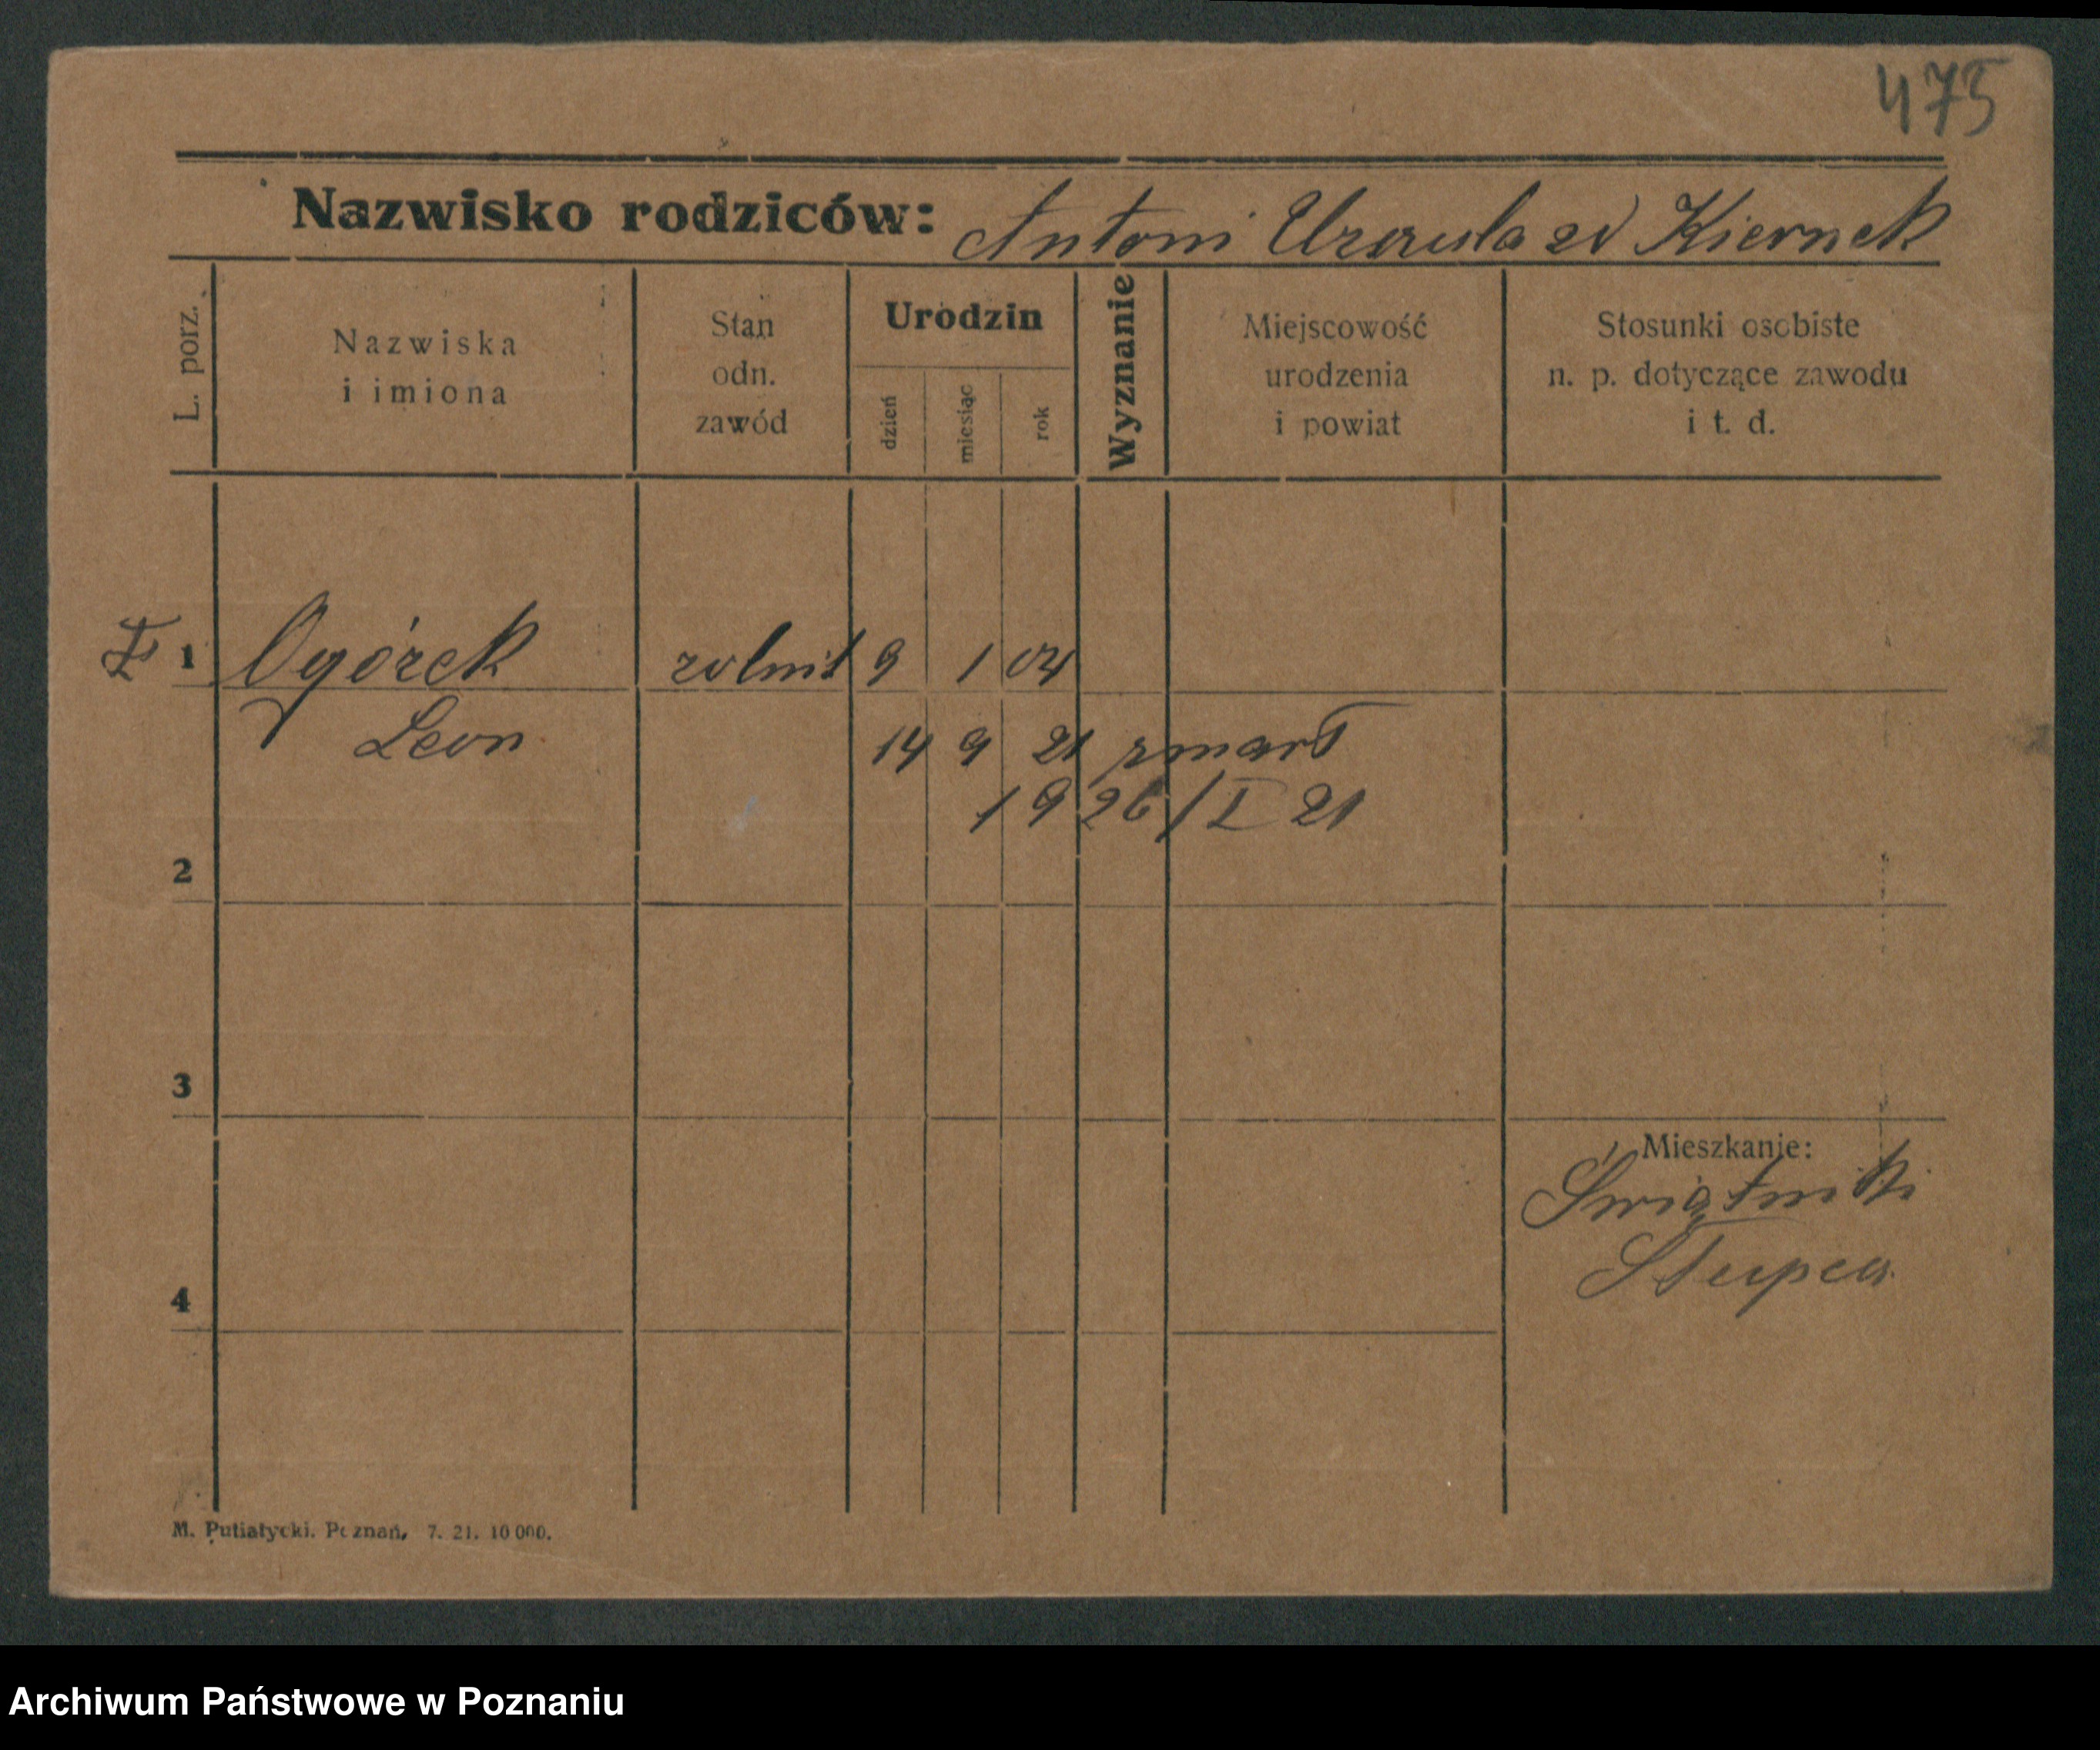 475
Nazwisko rodziców: Antoni Urszula zd Kiernek
L. porz.
Nazwiska
i imiona
Stan
odn.
zawód
Urodzin
dzień
miesiąc
rok
Wyznanie
Miejscowość
urodzenia
i powiat
Stosunki osobiste
n. p. dotyczące zawodu
i t. d.
1 Ogórek rolnik 9 1 04
Leon 14 9 21 zmarł
1926/I 21
2
3
Mieszkanie:
Świątniki
Słupca
4
M. Putiatycki. Poznań, 7. 21. 10 000.
Archiwum Państwowe w Poznaniu